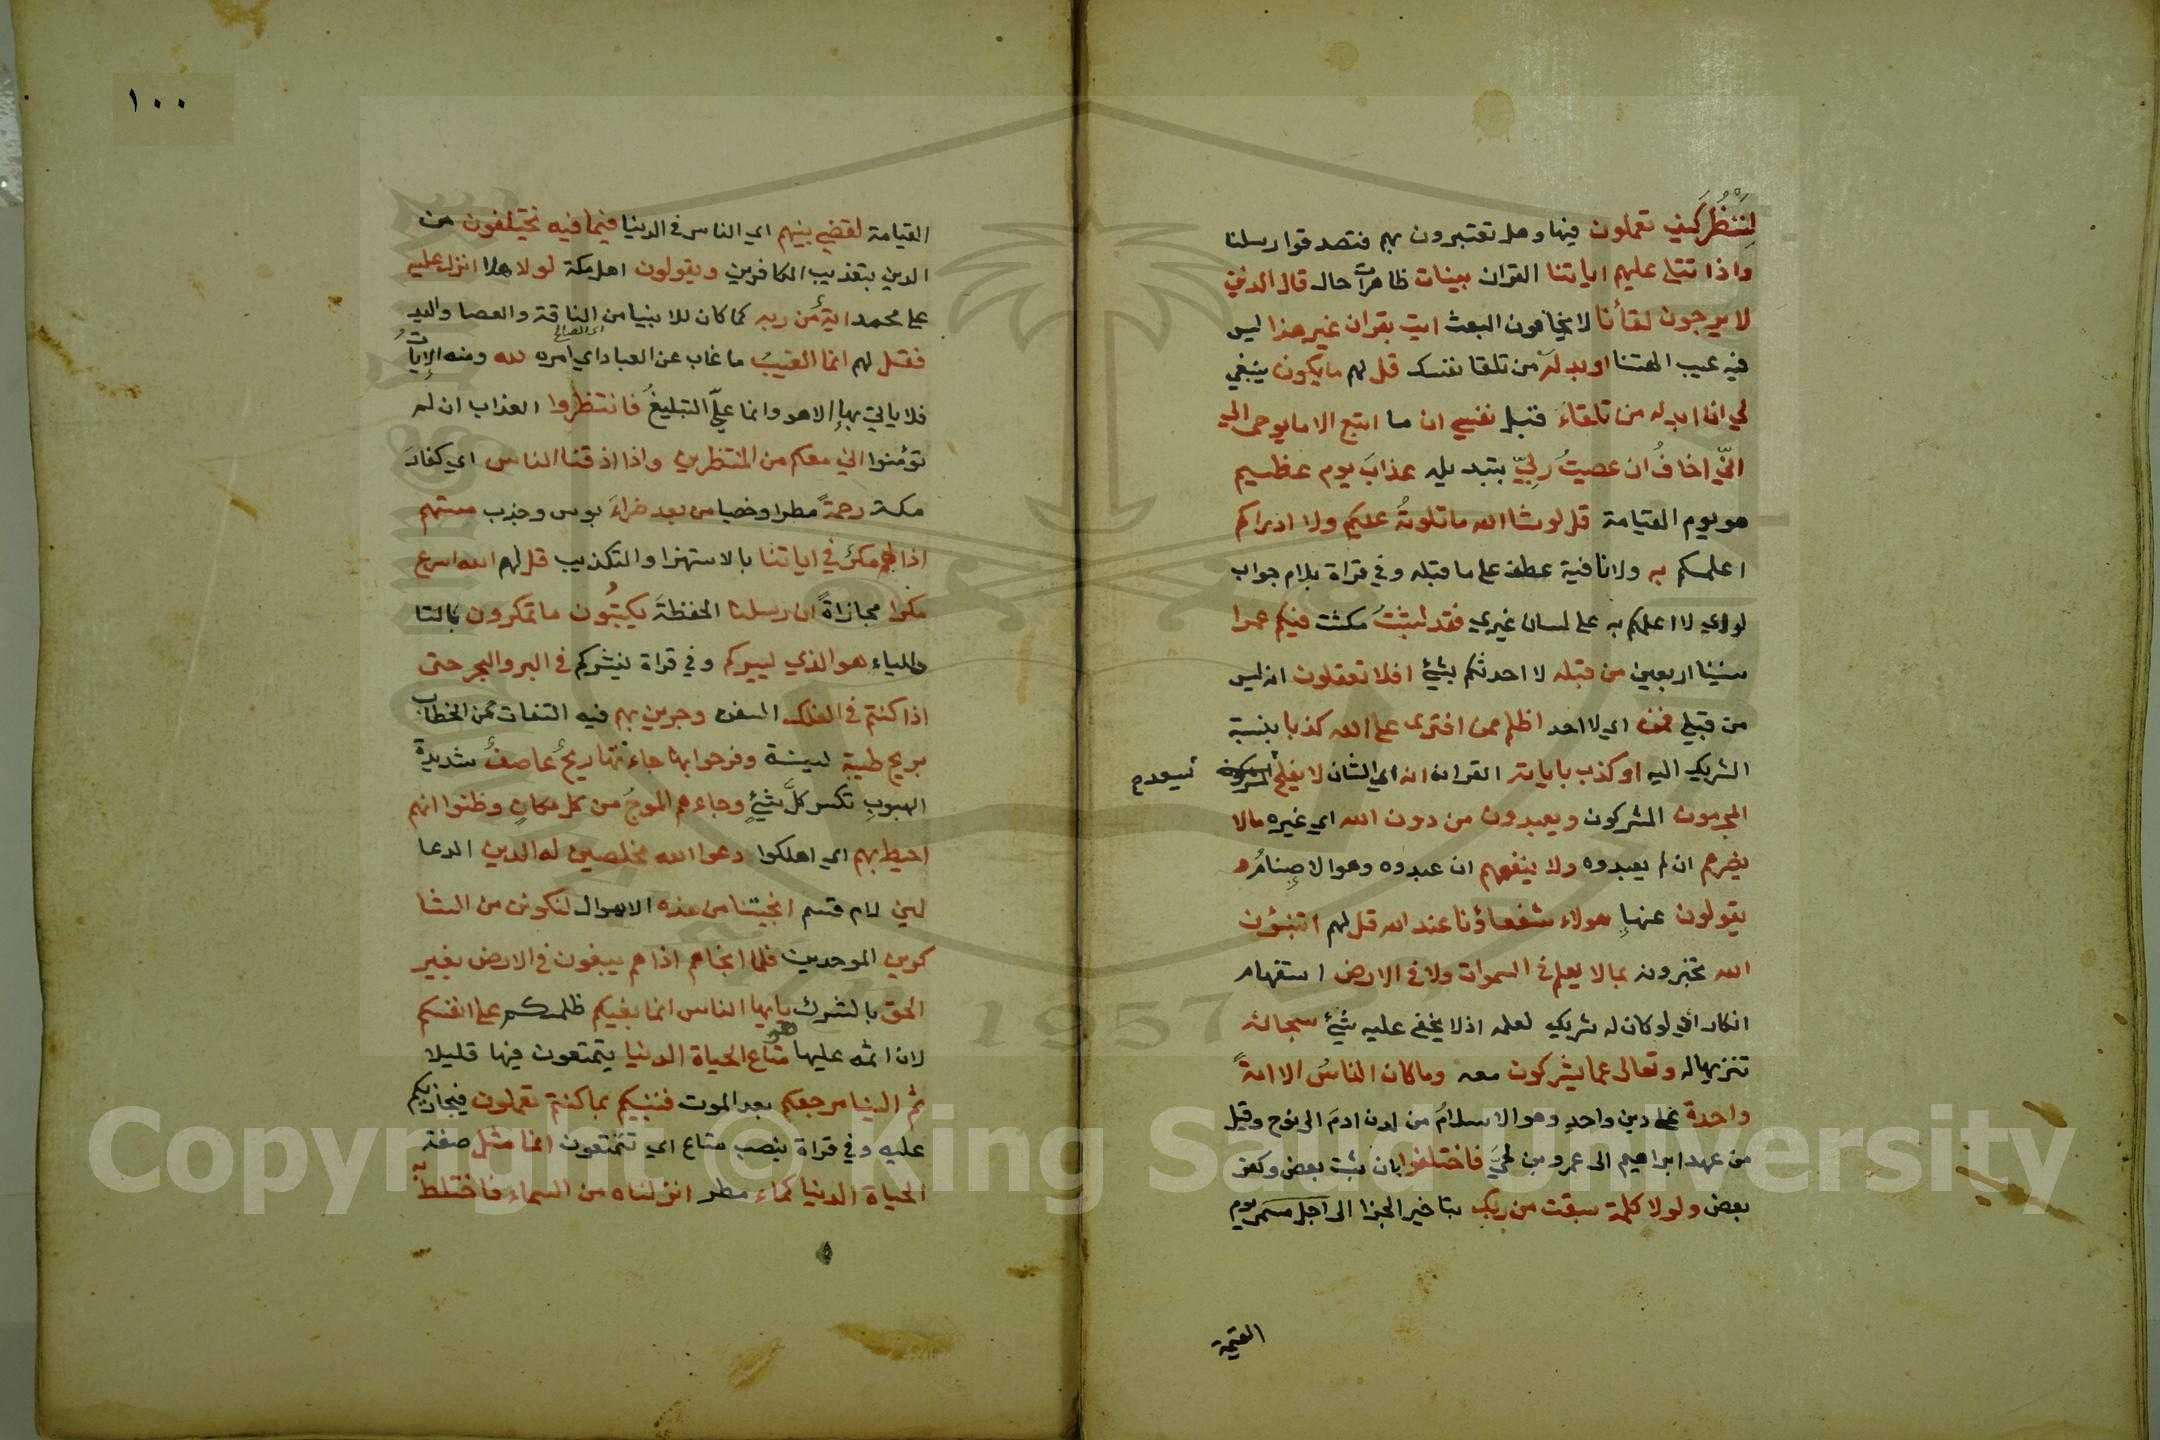 لِنَنْظُرَ كيف تعملون فيها وهل تعتبرون بهم فتصدقوا رسلنا
واذا تتلى عليهم اياتنا القران بينات ظاهرات حال قال الذين
لا يرجون لقأنا لا يخافون البعث ايت بقران غير هذا ليس
فيه عيب الهتنا او بدله من تلقا نفسك قل لهم ما يكون ينبغي
لي ان ابدله من تلقاء قبل نفسي ان ما اتبع الا ما يوحى الي
انّي اخافُ ان عصيتُ ربّي بتبديله عذابَ يوم عظيم
هو يوم القيامة قل لو شا الله ما تلوتُه عليكم ولا ادراكم
اعلمكم به ولا نافية عطف على ما قبله وفي قراة بلام جواب
لو اي لا اعلمكم به على لسان غيري فقد لبثتُ مكثت فيكم عمرا
سنينا اربعين من قبله لا احدثكم بشئ افلا تعقلون انه ليس
من قبلي فمن اي لا احد اظلم ممن افترى على الله كذبا بنسبة
الشريك اليه او كذب باياته القران انه اي الشان لا يفلح المشركون
يسعد م
المجرمون المشركون ويعبدون من دون الله اي غيره مالا
يضرهم ان لم يعبدوه ولا ينفعهم ان عبدوه وهو الاصنامُ و
يقولون عنها هولاء شفعاؤنا عند الله قل لهم اتنبؤن
الله تخبرونه بما لا يعلم في السموات ولا في الارض استفهام
انكار اي لو كان له شريك لعلمه اذ لا يخفى عليه شئ سبحانه
تنزيها له وتعالى عما يشركون معه وما كان الناسُ الا امةً
واحدةً على دين واحد وهو الاسلامُ من لدن ادمَ الى نوح وقيل
من عهد ابراهيم الى عمرو بن لحيّ فاختلفوا بان ثبت بعض وكفر
بعض ولولا كلمة سبقت من ربك بتاخير الجزا الى اجل مسمى يوم
القيمة
١٠٠
القيامة لقضي بينهم اي الناس في الدنيا فيما فيه يختلفون من
الدين بتعذيب الكافرين ويقولون اهل مكة لولا هلا انزل عليه
على محمد ايةٌ من ربه كما كان للانبيا من الناقة والعصا واليد
فقل لهم انما الغيبُ ما غاب عن العباد اي امره لله ومنه الاياتُ
فلا ياتي بها الا هو وانما عليّ التبليغُ فانتظروا العذاب ان لم
تؤمنوا اني معكم من المنتظرين واذا اذقنا الناس اي كفارَ
مكة رحمةً مطرا وخصبا من بعد ضراءَ بوس وجدب مستهم
اذا لهم مكرٌ في اياتنا بالاستهزا والتكذيب قل لهم الله اسرع
مكرا مجازاةً ان رسلنا الحفظةَ يكتبُون ما تمكرون بالتا
والياء هو الذي يسيركم وفي قراة ينشركم في البر والبحر حتى
اذا كنتم في الفلك السفن وجرين بهم فيه التفات عن الخطاب
بريح طيبة لينة وفرحوا بها جاءتها ريحٌ عاصفٌ شديدة
الهبوب تكسر كلَّ شئٍ وجاءهم الموجُ من كل مكانٍ وظنوا انهم
احيط بهم اي اهلكوا دعوا الله مخلصين له الدين الدعا
لين لام قسم انجيتنا من هذه الاهوال لنكونن من الشا
كرين الموحدين فلما انجاهم اذا هم يبغون في الارض بغير
الحق بالشرك يايها الناس انما بغيكم ظلمكم على انفسكم
لان اثمه عليها هو متاع الحياة الدنيا يتمتعون فيها قليلا
ثم الينا مرجعكم بعد الموت فننبيكم بما كنتم تعملون فيجازيكم
عليه وفي قراة بنصب متاع اي تتمتعون انما مثل صفة
الحياة الدنيا كماء مطر انزلناه من السماء فاختلط